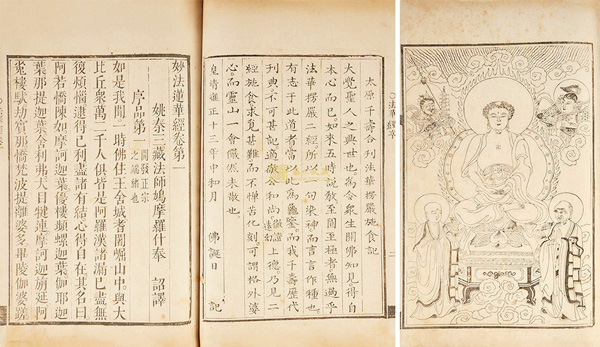 法華經
太原千壽合刊法華楞嚴施食記
大覺聖人之興世也為令衆生開佛知見得自
本心而已如來五時說敎至圓至極者無過乎
法華楞嚴二經所以一句染神而言言作種也
有志于此道者當以此為龜鑑而我千壽歷代
刋典不可甚記適徹公和尚上德乃見二
經施食求覓甚難而不憚苦化刻可謂格外婆
心而靈山一會儼然未散也
皇清雍正十三年中和月 佛誕日 記
妙法蓮華經卷第一
姚秦三藏法師鳩摩羅什奉 詔譯
序品第一 開發正宗之端緒也
如是我聞一時佛住王舍城耆闍崛山中與大
比丘衆萬二千人俱皆是阿羅漢諸漏已盡無
復煩惱逮得已利盡諸有結心得自在其名曰
阿若憍陳如摩訶迦葉優樓頻螺迦葉伽耶迦
葉那提迦葉舍利弗大目犍連摩訶迦旃延阿
㝹樓馱劫賓那憍梵波提離婆多畢陵伽婆蹉